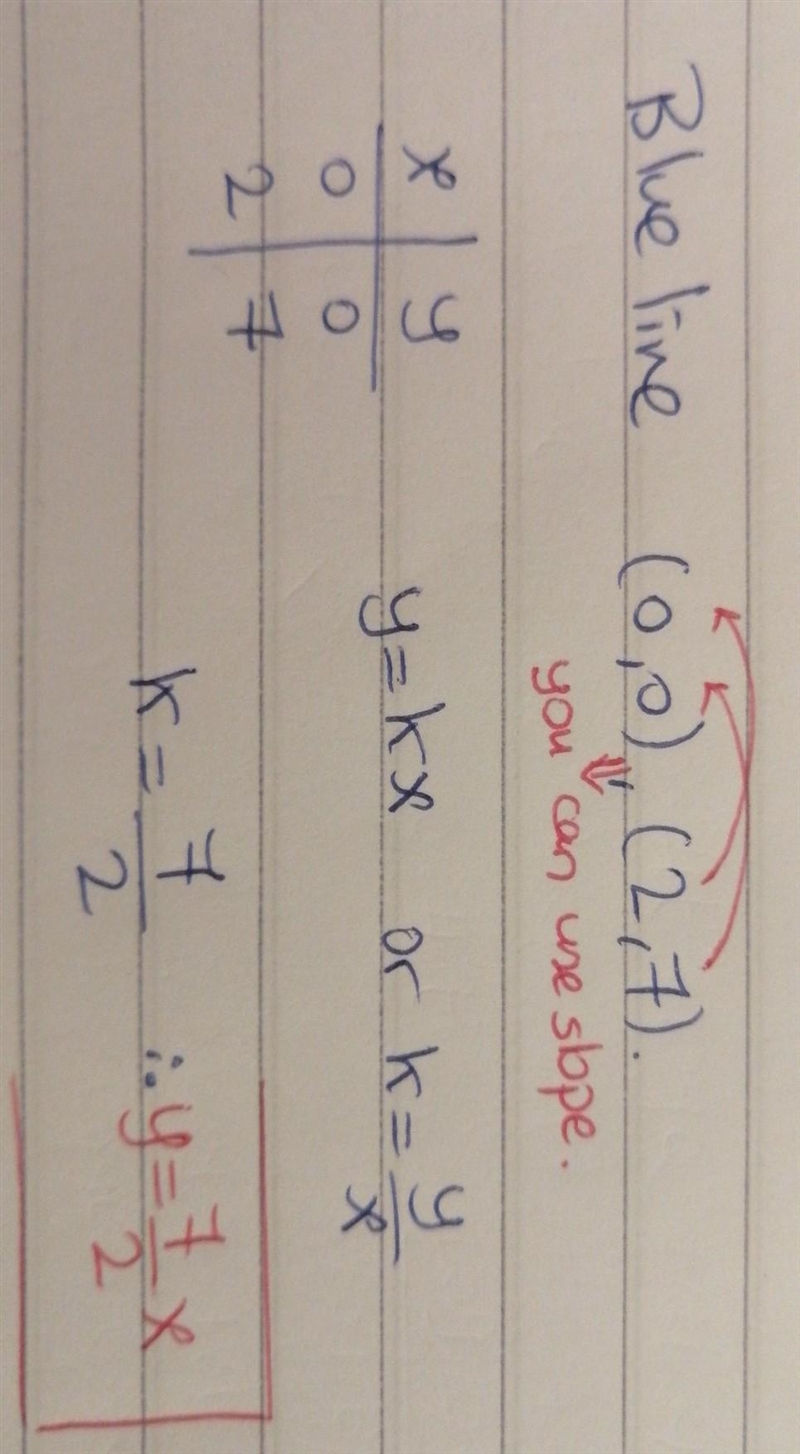 Blue line (0,0), (2,7).
⇓
you can use slope.
x | y
0 | 0
2 | 7
y = kx or k = y/x
k = 7/2 ∴ y = 7/2 x